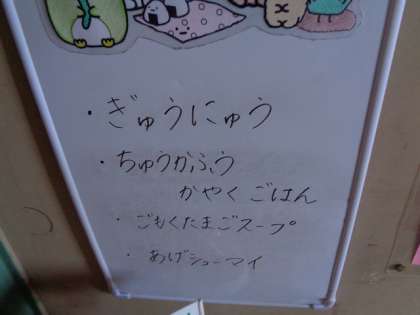 ・ぎゅうにゅう
・ちゅうかふう
かやくごはん
・ごもくたまごスープ
・あげシューマイ